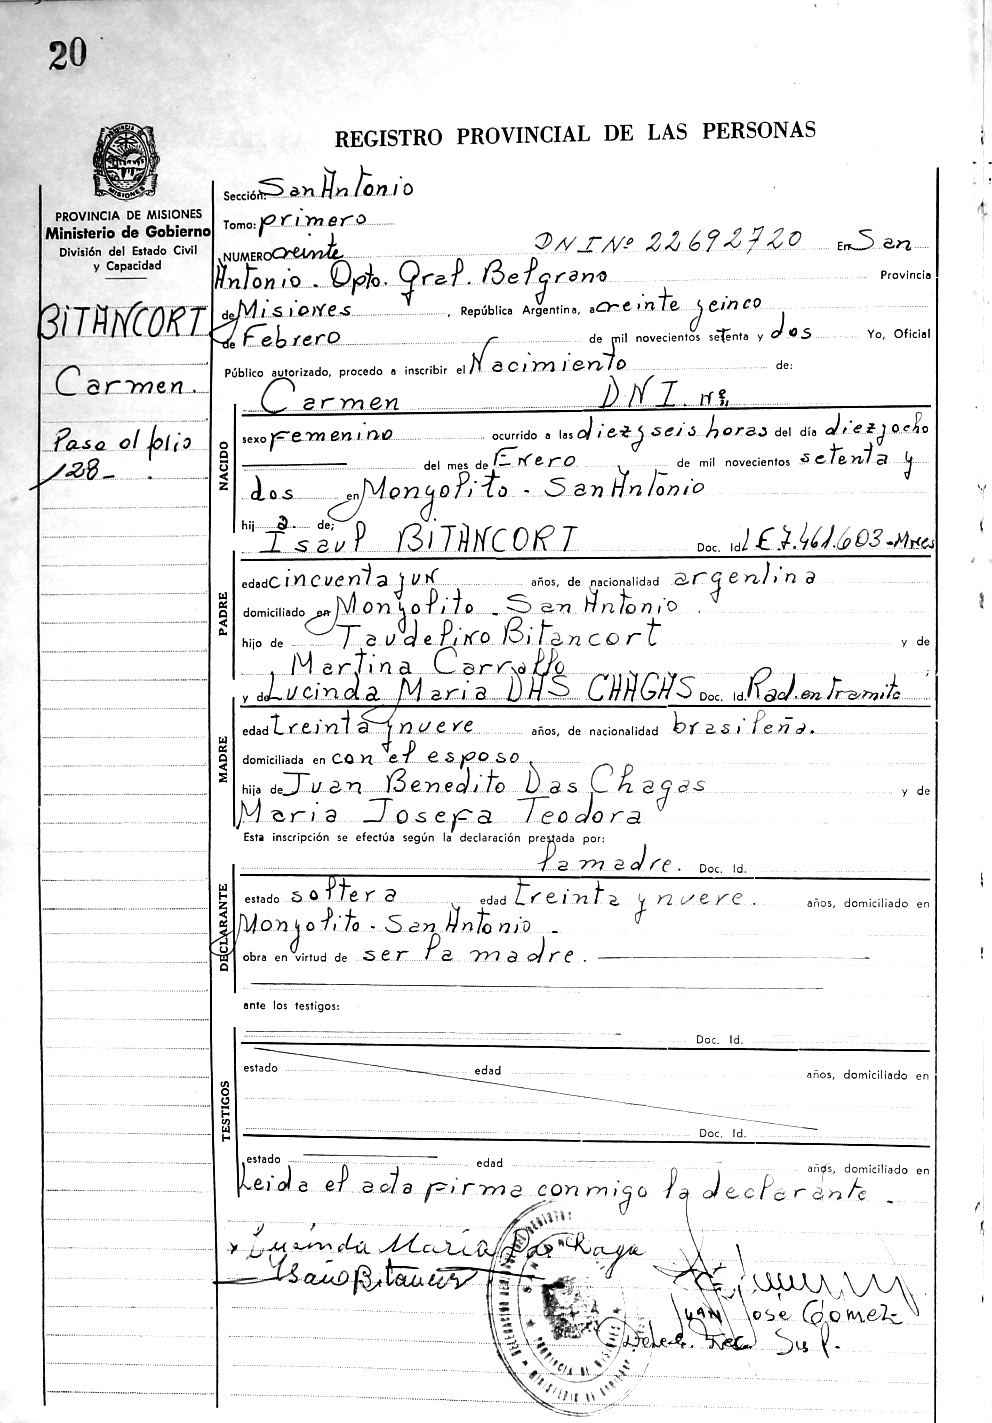 20
REGISTRO PROVINCIAL DE LAS PERSONAS
PROVINCIA DE MISIONES
Ministerio de Gobierno
División del Estado Civil
y Capacidad
BITANCORT
Carmen.
Pasa al folio
128-
Sección: San Antonio
Tomo: primero
NUMERO veinte DNI Nº 22692720 En San
Antonio. Dpto. Gral. Belgrano Provincia
de Misiones, República Argentina, a veinte y cinco
de Febrero de mil novecientos setenta y dos Yo, Oficial
Público autorizado, procedo a inscribir el Nacimiento de:
Carmen DNI. Nº
NACIDO
sexo femenino ocurrido a las diez y seis horas del día diez y ocho
del mes de Enero de mil novecientos setenta y
dos en Monyolito - San Antonio
hij a de;
Isaul BITANCORT Doc. Id. L E 7.461.603-Mnes
PADRE
edad cincuenta y un años, de nacionalidad argentina
domiciliado en Monyolito - San Antonio.
hijo de Taudelino Bitancort y de
Martina Carrallo ;
y de Lucinda Maria DAS CHAGAS Doc. Id. Rad. en tramite
MADRE
edad treinta y nueve años, de nacionalidad brasileña.
domiciliada en con el esposo.
hija de Juan Benedito Das Chagas y de
Maria Josefa Teodora
Esta inscripción se efectúa según la declaración prestada por:
la madre. Doc. Id.
DECLARANTE
estado soltera edad treinta y nueve. años, domiciliado en
Monyolito - San Antonio -
obra en virtud de ser la madre.
ante los testigos:
Doc. Id.
TESTIGOS
estado edad años, domiciliado en
Doc. Id.
estado edad años, domiciliado en
Leida el acta firma conmigo la declarante -
x Lusinda María Das Chaga
Bitancur
JUAN José Gomez
PROVINCIA DE MISIONES